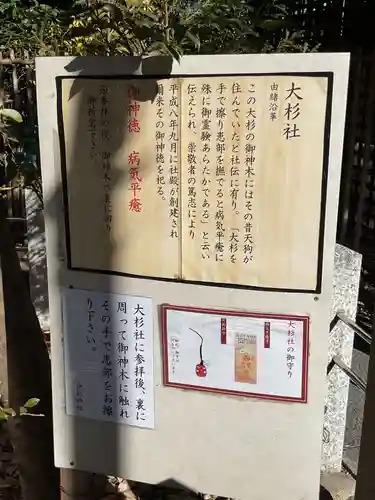 大杉社
由緒沿革
この大杉の御神木にはその昔天狗が
住んでいたと社伝に有り。「大杉を
手で擦り患部を撫でると病気平癒に
殊に御霊験あらたかである」と云い
伝えられ、崇敬者の篤志によって
平成八年九月に社殿が創建され
爾来その御神徳を祀る。
御神徳 病気平癒
御参拝の後、御神木の裏に周り
御祈念下さい。
大杉社に参拝後、裏に
周って御神木に触れ
その手で患部をお擦
り下さい。
大杉社の御守り